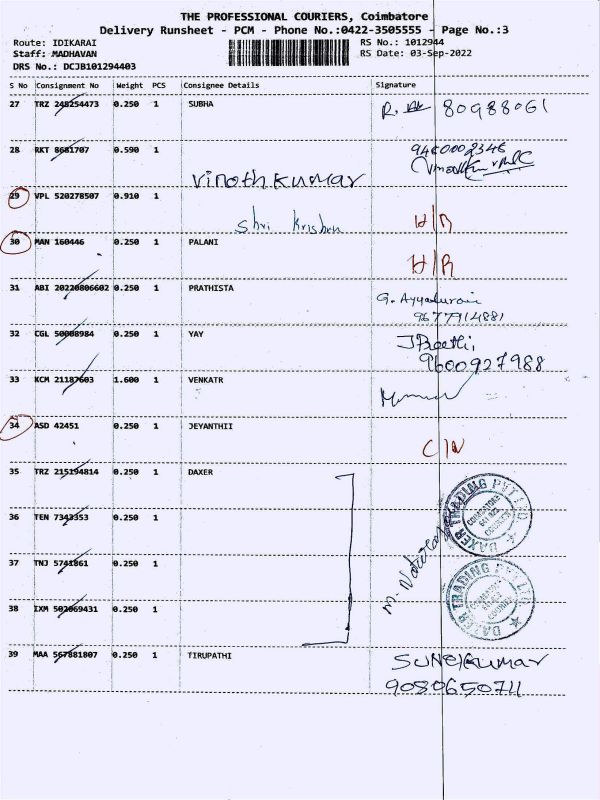 THE PROFESSIONAL COURIERS, Coimbatore
Delivery Runsheet - PCM - Phone No.:0422-3505555 - Page No.:3
Route: IDIKARAI RS No.: 1012944
Staff: MADHAVAN RS Date: 03-Sep-2022
DRS No.: DCJB101294403
S No Consignment No Weight PCS Consignee Details Signature
27 TRZ 248254473 0.250 1 SUBHA 80988061
28 RKT 8681707 0.590 1 9460002346
vinothkumar
29 VPL 520278507 0.910 1 H/R
Shri Krishna
30 MAN 160446 0.250 1 PALANI H/R
31 ABI 20220806602 0.250 1 PRATHISTA G. Ayyadurai
9677914881
32 CGL 50008984 0.250 1 YAY J Preethi,
9600927988
33 KCM 21187603 1.600 1 VENKATR
34 ASD 42451 0.250 1 JEYANTHII C/N
35 TRZ 215194814 0.250 1 DAXER
DAXER TRADING PVT LTD
36 TEN 7343353 0.250 1
37 TNJ 5741861 0.250 1
DAXER TRADING PVT LTD
38 IXM 502069431 0.250 1
39 MAA 567881807 0.250 1 TIRUPATHI
9080650711